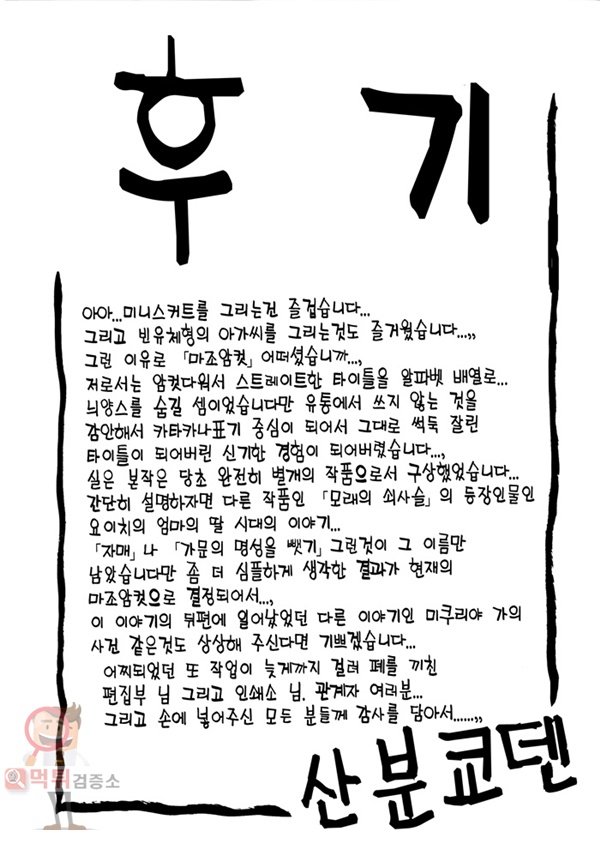 후기
아아...미니스커트를 그리는건 즐겁습니다...
그리고 빈유체형의 아가씨를 그리는것도 즐거웠습니다...,,
그런 이유로 「마조암컷」어떠셨습니까...,
저로서는 암컷다워서 스트레이트한 타이틀을 알파벳 배열로...
늬앙스를 숨길 셈이었습니다만 유통에서 쓰지 않는 것을
감안해서 카타카나표기 중심이 되어서 그대로 썩둑 잘린
타이틀이 되어버린 신기한 경험이 되어버렸습니다...,
실은 본작은 당초 완전히 별개의 작품으로서 구상했었습니다...
간단히 설명하자면 다른 작품인 「모래의 쇠사슬」의 등장인물인
요이치의 엄마의 딸 시대의 이야기...
「자매」나 「가문의 명성을 뺏기」그런것이 그 이름만
남았습니다만 좀 더 심플하게 생각한 결과가 현재의
마조암컷으로 결정되어서...,
이 이야기의 뒤편에 일어났었던 다른 이야기인 미쿠리야 가의
사건 같은것도 상상해 주신다면 기쁘겠습니다...
어찌되었던 또 작업이 늦게까지 걸려 폐를 끼친
편집부 님 그리고 인쇄소 님. 관계자 여러분...
그리고 손에 넣어주신 모든 분들께 감사를 담아서......,,
산분쿄덴
먹튀검증소